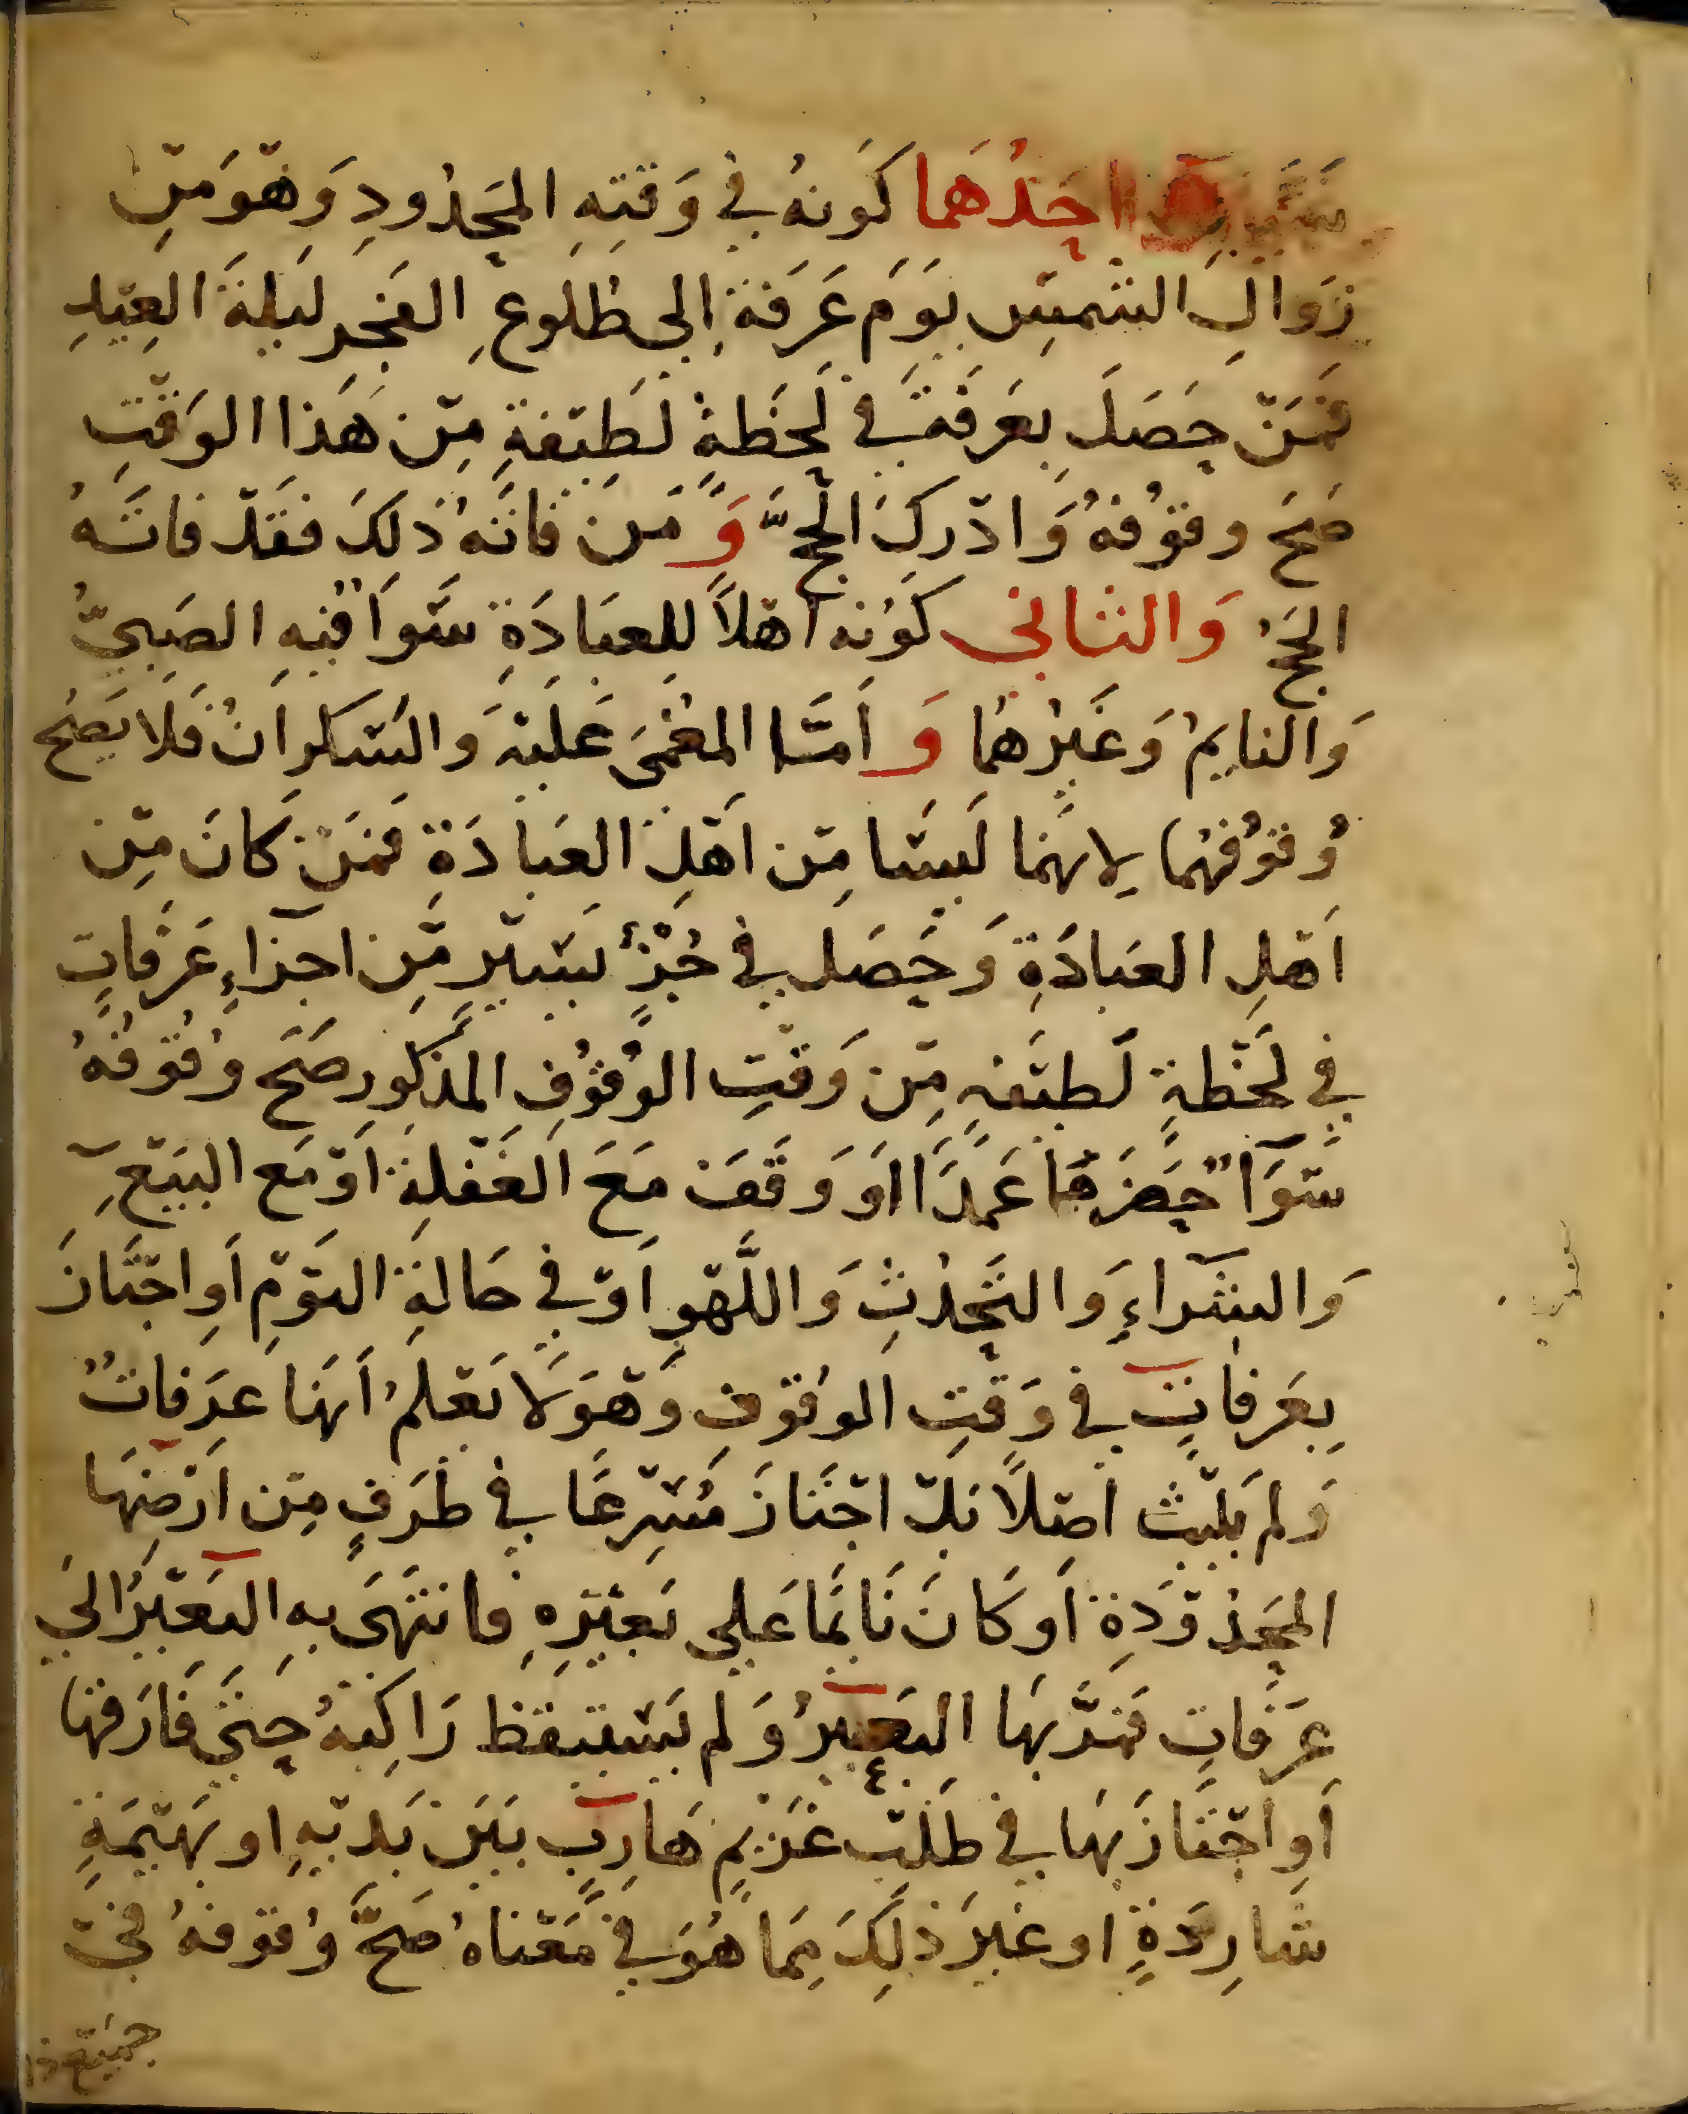 شيئين احَدُهَما كَونهُ في وَقتِهِ المحَدُودِ وَهْوَ مِنْ
زوَالِ الشمسِ يَومَ عَرَفةَ إلى طلُوعِ الفَجرِ ليلةَ العِيدِ
فمَنْ حَصَلَ بعَرفةَ في لحَظةٍ لَطِيفةٍ مِنْ هَذا الوَقتِ
صَحَ وقوُفهُ وَادْركَ الحجَّ وَمَن فاتَهُ ذلِكَ فقَدْ فاتَهُ
الحَجُ وَالثانى كَوُنه اَهْلاً للعِبَادَةِ سَواَ فيهِ الصَبيُّ
وَالنايِمُ وَغَيرُهُما وَ اَمَّا المغُمَى عَليْهِ وَالسَكراَنُ فَلا يَصَح
وُقوُفهُما لِانهُما ليسَا مِنْ اَهْلِ العبَادَةِ فمَنْ كَانَ مِنْ
اَهْلِ العبادَةِ وَحَصَل في جُزْءٍ يَسيْرٍ مِّن اجزآءِ عَرَفاتٍ
في لحَظةٍ لَطيفهٍ مِنْ وَقتِ الوُقوُفِ المذكوُرِ صَحَ وُقوُفهُ
سَوَآءً حَضَرهَا عَمدًا اَو وَقَفَ مَعَ الغَفْلةِ اَوْ مَع البَيْعِ
وَالشرآءِ وَالتحَدُثِ وَاللَّهْوِ اَوْ في حَالةِ النَوْمِ اَوِ اجْتَازَ
بِعَرفاتٍ في وَقتِ الوُقوُفِ وَهْوَ لَا يَعْلمُ اَنهَا عرَفاتٌ
وَلم يَلبَثْ اصْلاً بَلْ اجْتَازَ مُسْرِعًا في طَرَفٍ مِنْ اَرْضِهَا
المحَدُودَةِ اَو كَانَ نَايمًا عَلى بَعيْرِهِ فانتَهَى بهِ البَعيْرُ الىَ
عَرَفاتٍ فمَرَّ بهَا البَعيرُ وَلم يَستيقظ رَاكبهُ حَتىَ فَارَقهَا
اَوِ اجْتَازَ بهَا في طلَبْ غَريمٍ هَارِبٍ بيَنَ يَديْهِ او بَهيْمَةٍ
شَارِدَةٍ او غيرَ ذلِكَ مِمَا هُوَ في مَعْناهُ صَحَّ وُقوفهُ في
جميْع ذا